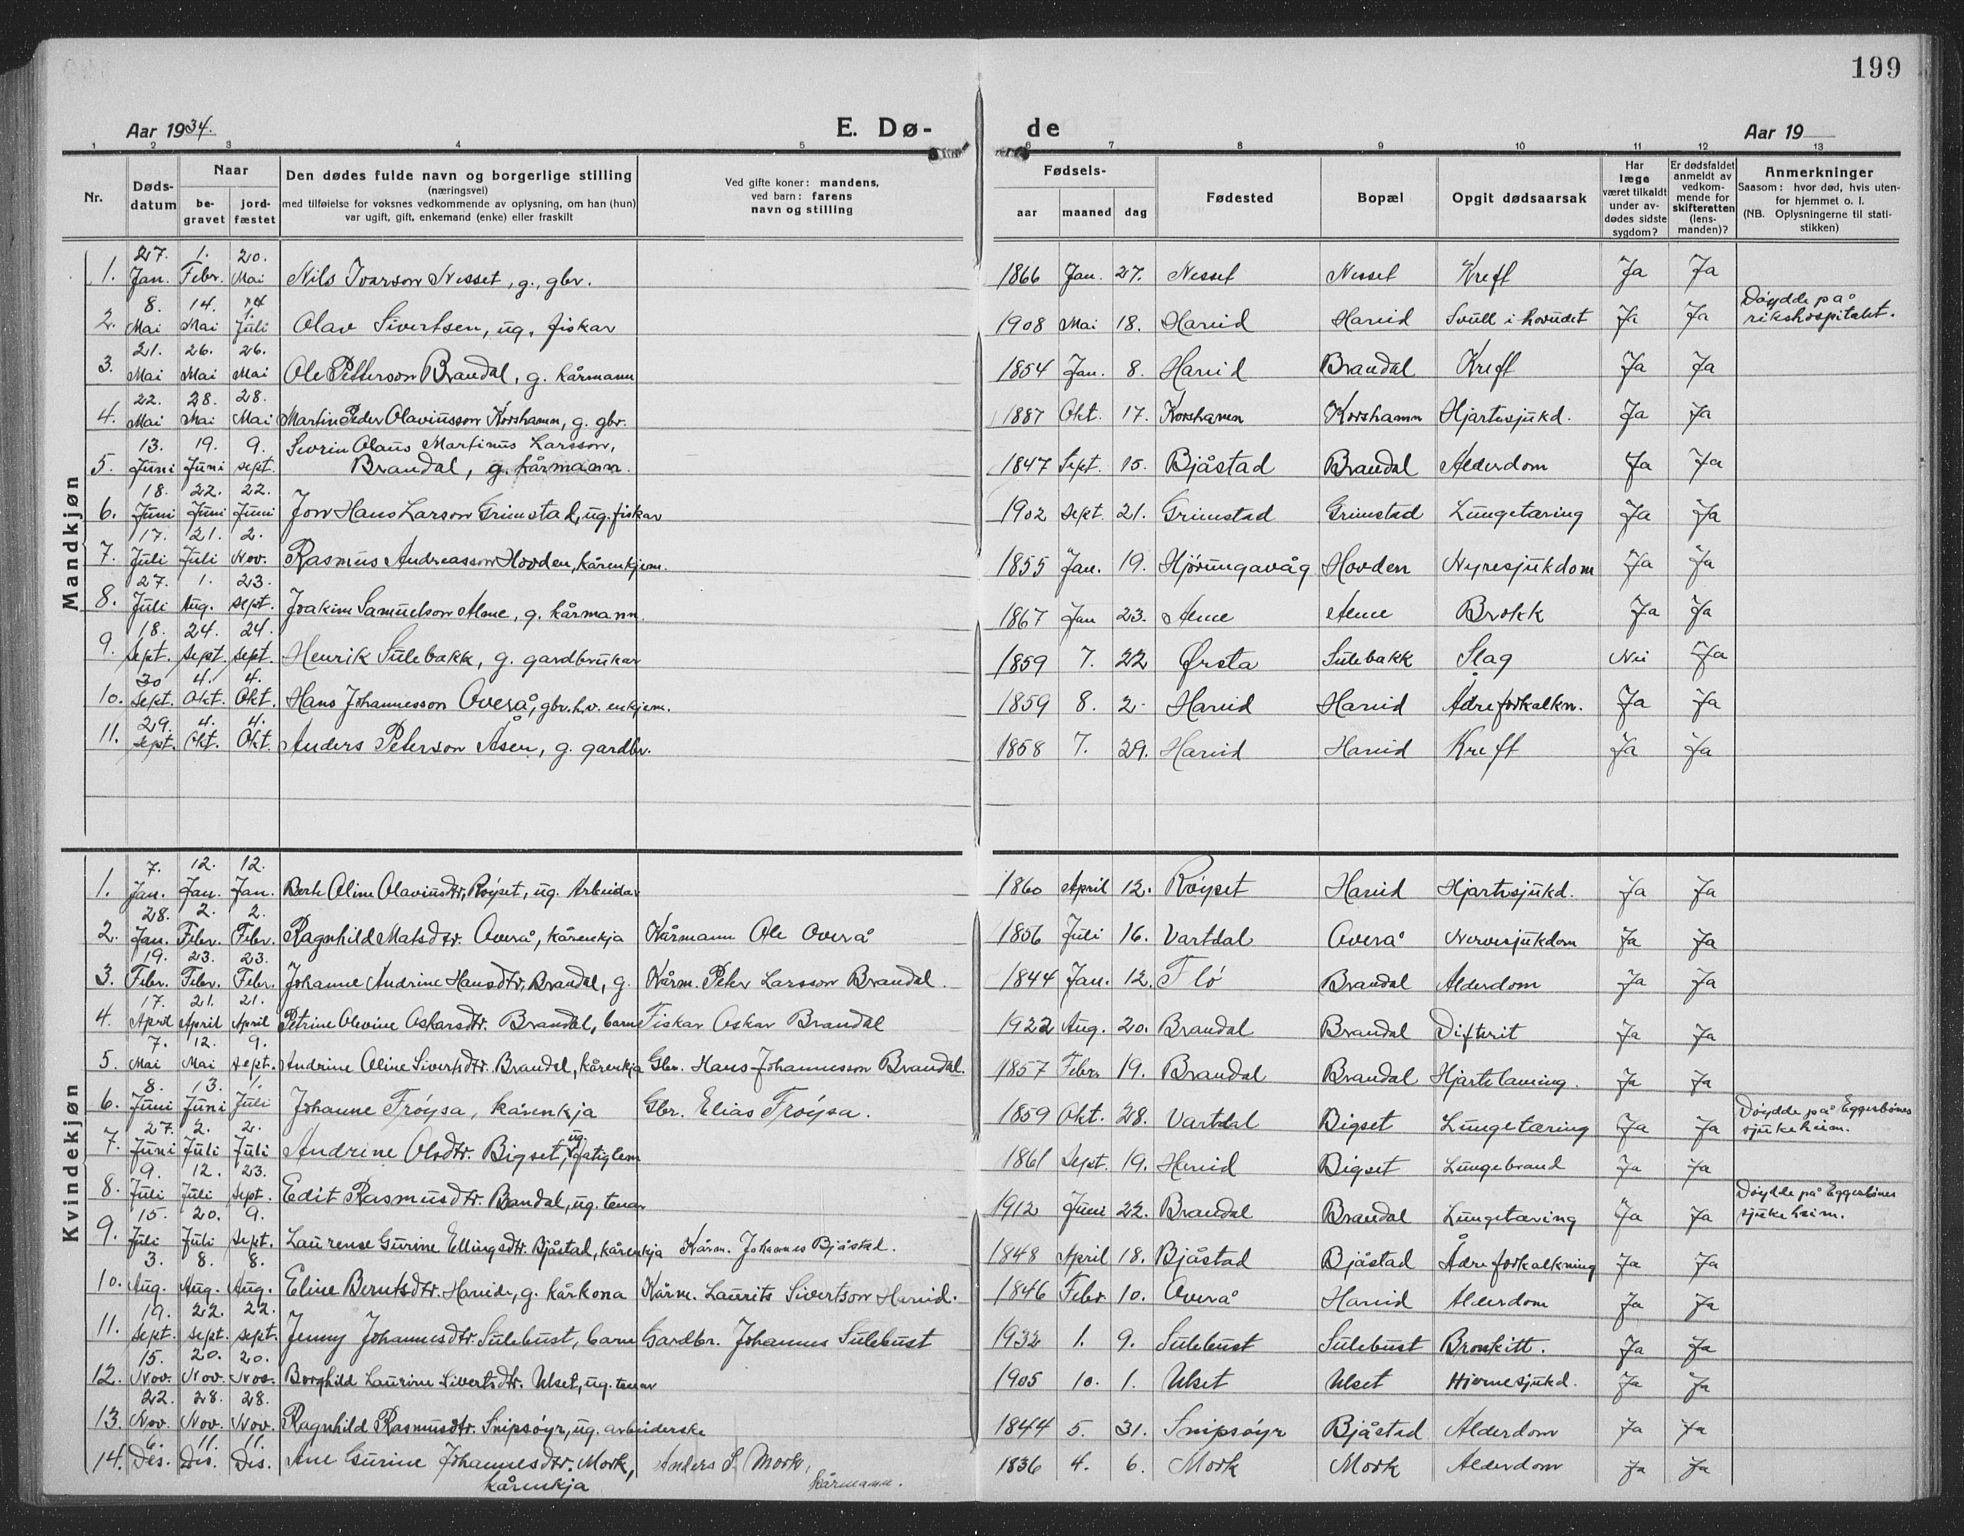 199
Aar 1934. E. Dø- de Aar 19
1 2 3 4 5 6 7 8 9 10 11 12 13
Nr. | Døds-datum | Naar be-gravet | jord-fæstet | Den dødes fulde navn og borgerlige stilling (næringsvei) med tilføielse for voksnes vedkommende av oplysning, om han (hun) var ugift, gift, enkemand (enke) eller fraskilt | Ved gifte koner: mandens, ved barn: farens navn og stilling | Fødsels- aar | maaned | dag | Fødested | Bopæl | Opgit dødsaarsak | Har læge været tilkaldt under av-dødes sidste sygdom? | Er dødsfaldet anmeldt av vedkom-mende for skifteretten (lens-manden)? | Anmerkninger Saasom: hvor død, hvis uten-for hjemmet o. l. (NB. Oplysningerne til stati-stikken)
Mandkjøn
1. 27. Jan. 1. Febr. 20. Mai Nils Ivarson Nesset, g., gbr. 1866 Jan. 27. Nesset Nesset Kreft Ja Ja
2. 8. Mai 14. Mai 14. Juli Olav Sivertsen, ug. fiskar 1908 Mai 18. Hareid Hareid Svull i hovudet Ja Ja Döydde på rikshospitalet.
3. 21. Mai 26. Mai 26. Mai Ole Petterson Brandal, g. kårmann 1854 Jan. 8. Hareid Brandal Kreft Ja Ja
4. 22. Mai 28. Mai 28. Mai Martin Peder Olaviusson Korshamn, g. gbr. 1887 Okt. 17. Korshamn Korshamn Hjartesjukd. Ja Ja
5. 13. Juni 19. Juni 9. sept. Sivrin Olaus Martinus Larsson, Brandal, g. kårmann. 1847 Sept. 15. Bjåstad Brandal Alderdom Ja Ja
6. 18. Juni 22. Juni 22. Juni Jon Hans Larson Grimstad, ug. fiskar 1902 Sept. 21. Grimstad Grimstad Lungetæring Ja Ja
7. 17. Juli 21. Juli 2. Nov. Rasmus Andreasson Hovden, kårenkjem. 1855 Jan. 19. Hjörungavåg Hovden Nyresjukdom Ja Ja
8. 27. Juli 1. Aug. 23. Sept. Joakim Samuelson Alme, g. kårmann. 1867 Jan 23. Alme Alme Brokk Ja Ja
9. 18. Sept. 24. Sept. 24. sept. Henrik Sulebakk, g. gardbrukar 1859 7. 22 Ørsta Sulebakk Slag Nei Ja
10. 30 Sept. 4. Okt. 4. Okt. Hans Johannesson Overå, gbr. h.v. enkjem. 1859 8. 2. Hareid Hareid Ådreforkalkn. Ja Ja
11. 29. Sept. 4. Okt. 4. Okt. Anders Peterson Åsen, g. gardbr. 1858 7. 29. Hareid Hareid Kreft Ja Ja
Kvindekjøn
1. 7. Jan. 12. Jan. 12. Jan. Berte Oline Olaviusdtr. Röyset, ug. Arbeidar 1860 April 12. Röyset Hareid Hjartesjukd. Ja Ja
2. 28. Jan. 2. Febr. 2. Febr. Ragnhild Matsdtr. Overå, kårenkja Kårmann Ole Overå 1856 Juli 16. Vartdal Overå Nervesjukdom Ja Ja
3. 19. Febr. 23. Febr. 23. Febr. Johanne Andrine Hansdtr. Brandal, g. Kårm. Peter Larsson Brandal. 1844 Jan. 12. Flö Brandal Alderdom Ja Ja
4. 17. April 21. April 21. April Petrine Olevine Oskarsdtr. Brandal, barn Fiskar Oskar Brandal 1922 Aug. 20. Brandal Brandal Difterit Ja Ja
5. 7. Mai 12. Mai 9. Sept. Andrine Oline Sivertsdtr. Brandal, kårenkja Gbr. Hans Johannesson Brandal. 1857 Febr. 19. Brandal Brandal Hjartelaming. Ja Ja
6. 8. Juni 13. Juni 1. Juli Johanne Tröysa, kårenkja Gbr. Elias Tröysa. 1859 Okt. 28. Vartdal Bigset Lungetæring Ja Ja Döydde på Eggesbönes sjukeheim.
7. 27. Juni 2. Juli 2. Juli Andrine Olsdtr. Bigset, ug. fatiglem 1861 Sept. 19. Hareid Bigset Lungebrand Ja Ja
8. 9. Juli 12. Juli 23. Sept. Edit Rasmusdtr. Bandal, ug. tenar 1912 Juni 22. Brandal Brandal Lungetæring Ja Ja Döydde på Eggesbönes sjukeheim.
9. 15. Juli 20. Juli 9. Sept. Laurense Gurine Ellingsdtr. Bjåstad, kårenkja Kårm. Johannes Bjåstad. 1848 April 18. Bjåstad Bjåstad Ådreforkalkning Ja Ja
10. 3. Aug. 8. Aug. 8. Aug. Eline Berntsdtr. Hareide, g. kårkona Kårm. Laurits Sivertson Hareid. 1846 Febr 10. Overå Hareid Alderdom Ja Ja
11. 19. Sept. 22. sept. 22. sept. Jenny Johannesdtr. Sulebust, barn Gardbr. Johannes Sulebust 1932 1. 9. Sulebust Sulebust Bronkitt. Ja Ja
12. 15. Nov. 20. Nov. 20. Nov. Borghild Laurine Sivertsdtr. Ulset, ug. tenar 1905 10. 1. Ulset Ulset Hjernesjukd. Ja Ja
13. 22. Nov. 28. Nov. 28. Nov. Ragnhild Rasmusdtr. Snipsöyr, ug. arbeiderske 1844 5. 31. Snipsöyr Bjåstad Alderdom Ja Ja
14. 6. Des. 11. Des. 11. Des. Ane Gurine Johannesdtr. Mork, kårenkja Anders S. Mork, kårmann. 1836 4. 6. Mork Mork Alderdom Ja Ja